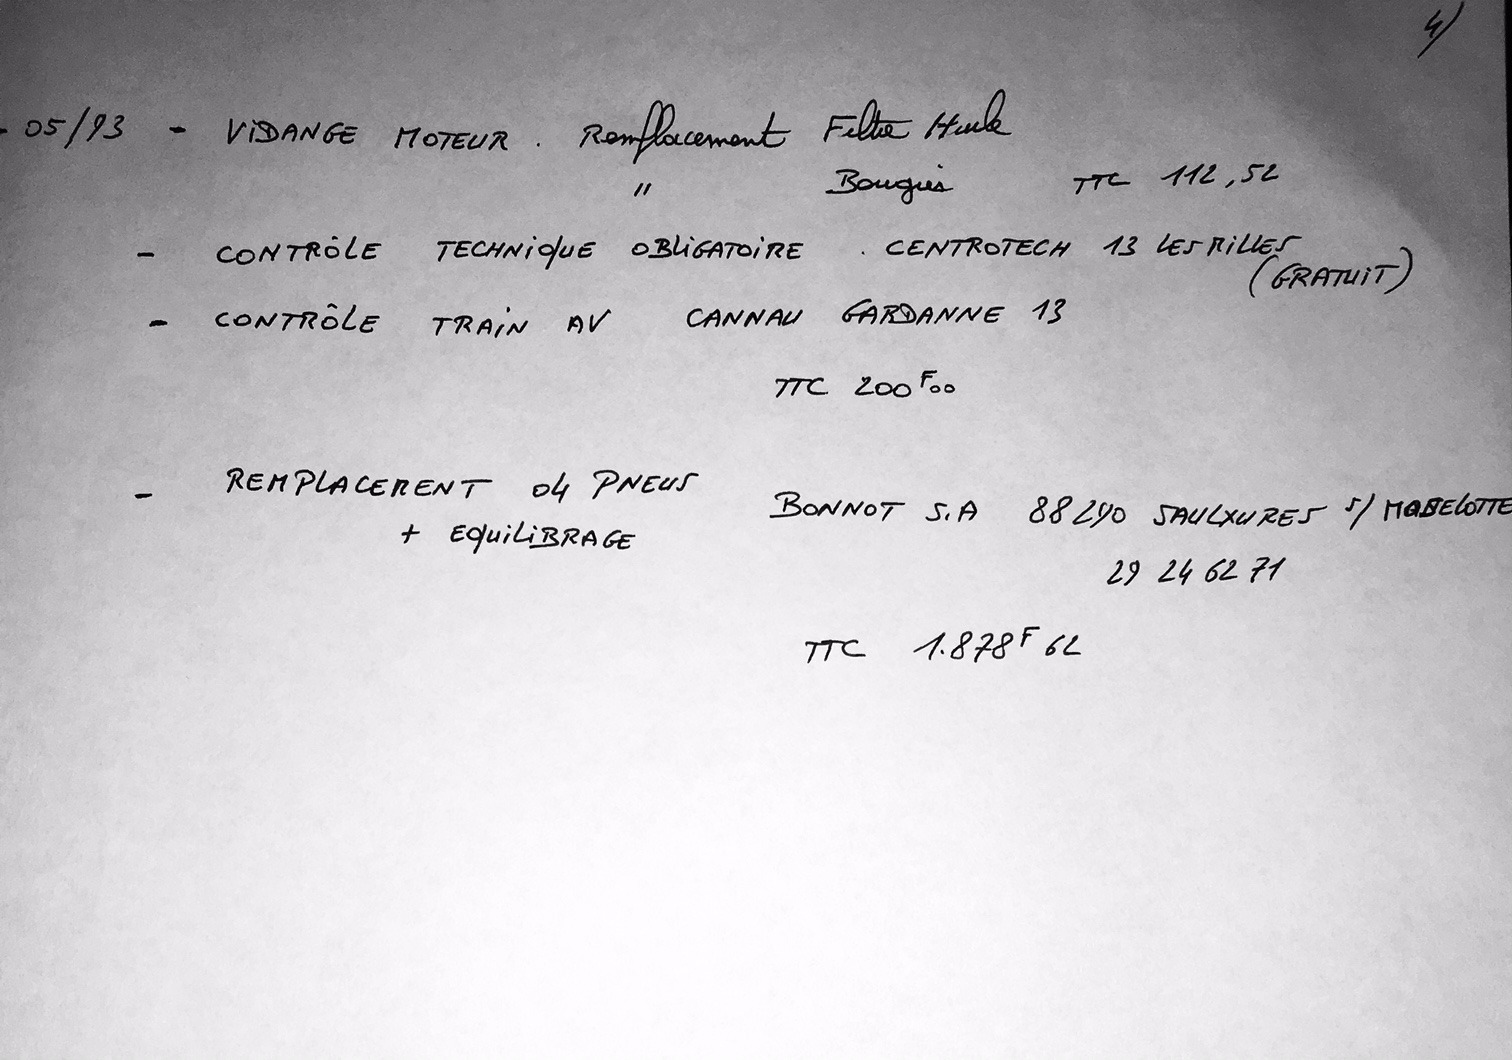 4)
- 05/93 - VIDANGE MOTEUR . Remplacement Filtre Huile
" Bougies TTC 112,52
- CONTRÔLE TECHNIQUE OBLIGATOIRE . CENTROTECH 13 LES MILLES
(GRATUIT)
- CONTRÔLE TRAIN AV CANNAU GARDANNE 13
TTC 200F00
- REMPLACEMENT 04 PNEUS
BONNOT S.A 88290 SAULXURES s/ MOSELOTTE
+ EQUILIBRAGE
29 24 62 71
TTC 1.878F 62